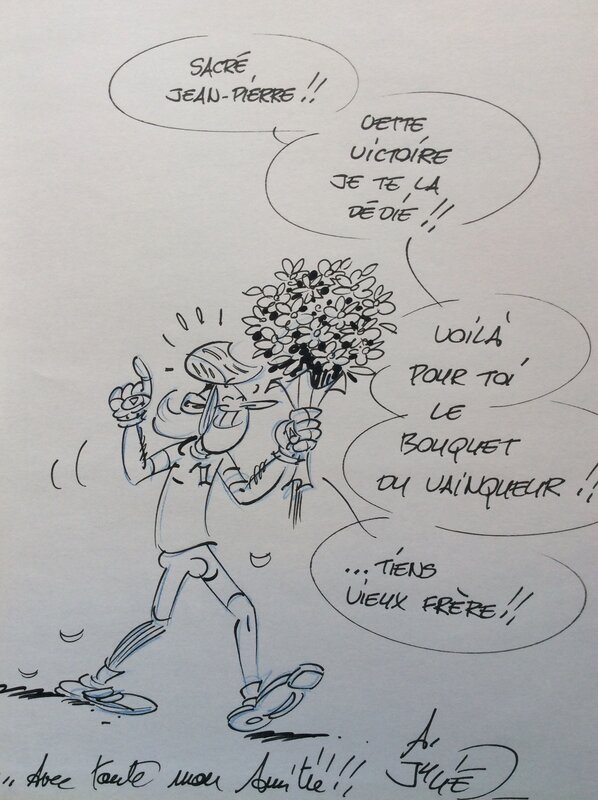 SACRÉ
JEAN-PIERRE!!
CETTE
VICTOIRE
JE TE LA
DÉDIE!!
VOILÀ
POUR TOI
LE
BOUQUET
DU VAINQUEUR!!
...TIENS
VIEUX FRÈRE!!
.. Avec toute mon Amitié!!!
A. JULIÉ